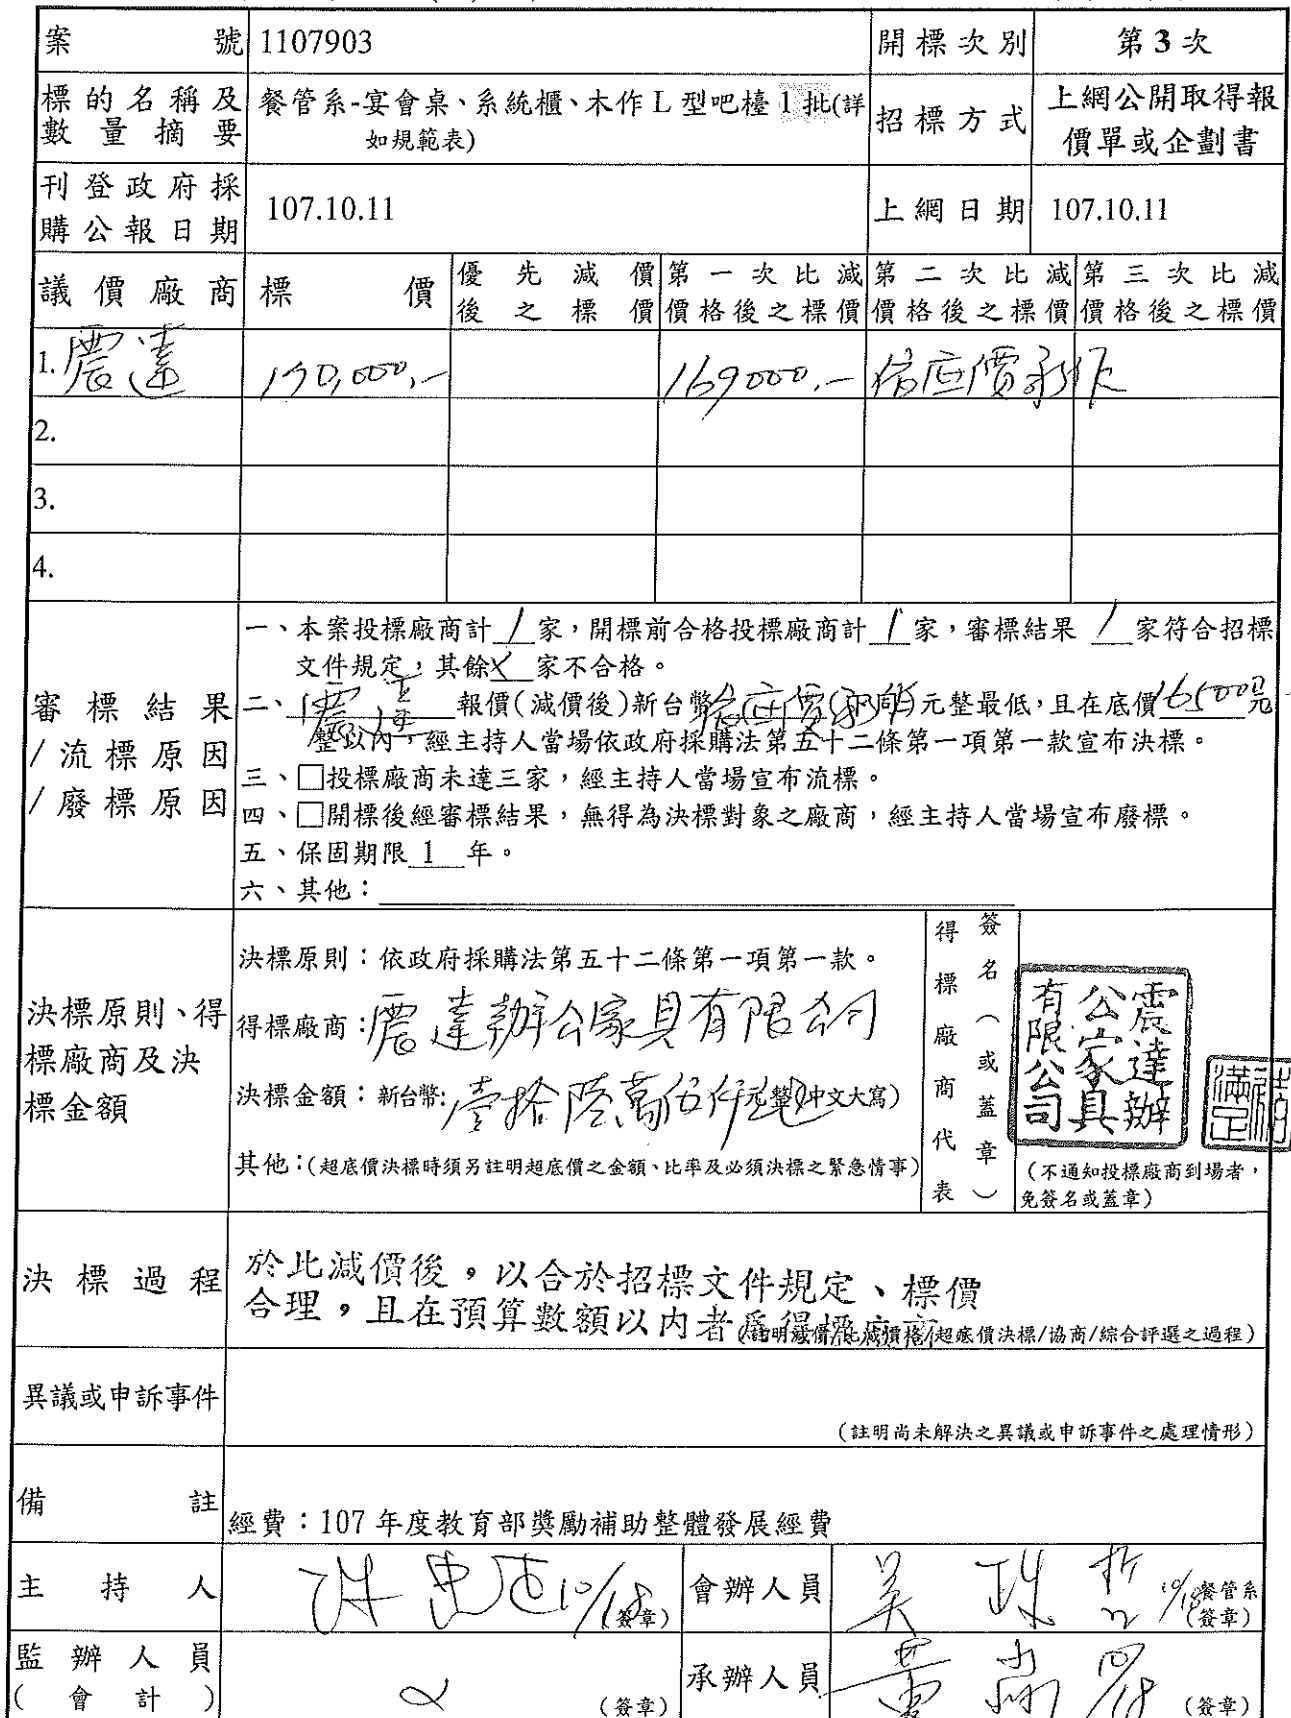 案號 1107903 開標次別 第3次
標的名稱及數量摘要 餐管系-宴會桌、系統櫃、木作L型吧檯1批(詳如規範表) 招標方式 上網公開取得報價單或企劃書
刊登政府採購公報日期 107.10.11 上網日期 107.10.11
議價廠商 標價 優先減價後之標價 第一次比減價格後之標價 第二次比減價格後之標價 第三次比減價格後之標價
1. 震達 190,000.- 169000.- 依底價承作
2.
3.
4.
審標結果/流標原因/廢標原因
一、本案投標廠商計 1 家，開標前合格投標廠商計 1 家，審標結果 1 家符合招標
文件規定，其餘 X 家不合格。
二、震達 報價(減價後)新台幣依底價承作元整最低，且在底價165000元
整以內，經主持人當場依政府採購法第五十二條第一項第一款宣布決標。
三、□投標廠商未達三家，經主持人當場宣布流標。
四、□開標後經審標結果，無得為決標對象之廠商，經主持人當場宣布廢標。
五、保固期限 1 年。
六、其他：
決標原則、得標廠商及決標金額
決標原則：依政府採購法第五十二條第一項第一款。
得標廠商：震達辦公家具有限公司
決標金額：新台幣:壹拾陸萬伍仟元整(中文大寫)
其他：(超底價決標時須另註明超底價之金額、比率及必須決標之緊急情事)
得標廠商代表
簽名（或蓋章）
震達辦公家具有限公司
(不通知投標廠商到場者，
免簽名或蓋章)
決標過程
於比減價後，以合於招標文件規定、標價
合理，且在預算數額以內者為得標廠商
(註明減價/比減價格/超底價決標/協商/綜合評選之過程)
異議或申訴事件
(註明尚未解決之異議或申訴事件之處理情形)
備註
經費：107年度教育部獎勵補助整體發展經費
主持人 10/18 (簽章) 會辦人員 10/18 餐管系(簽章)
監辦人員(會計) (簽章) 承辦人員 (簽章)